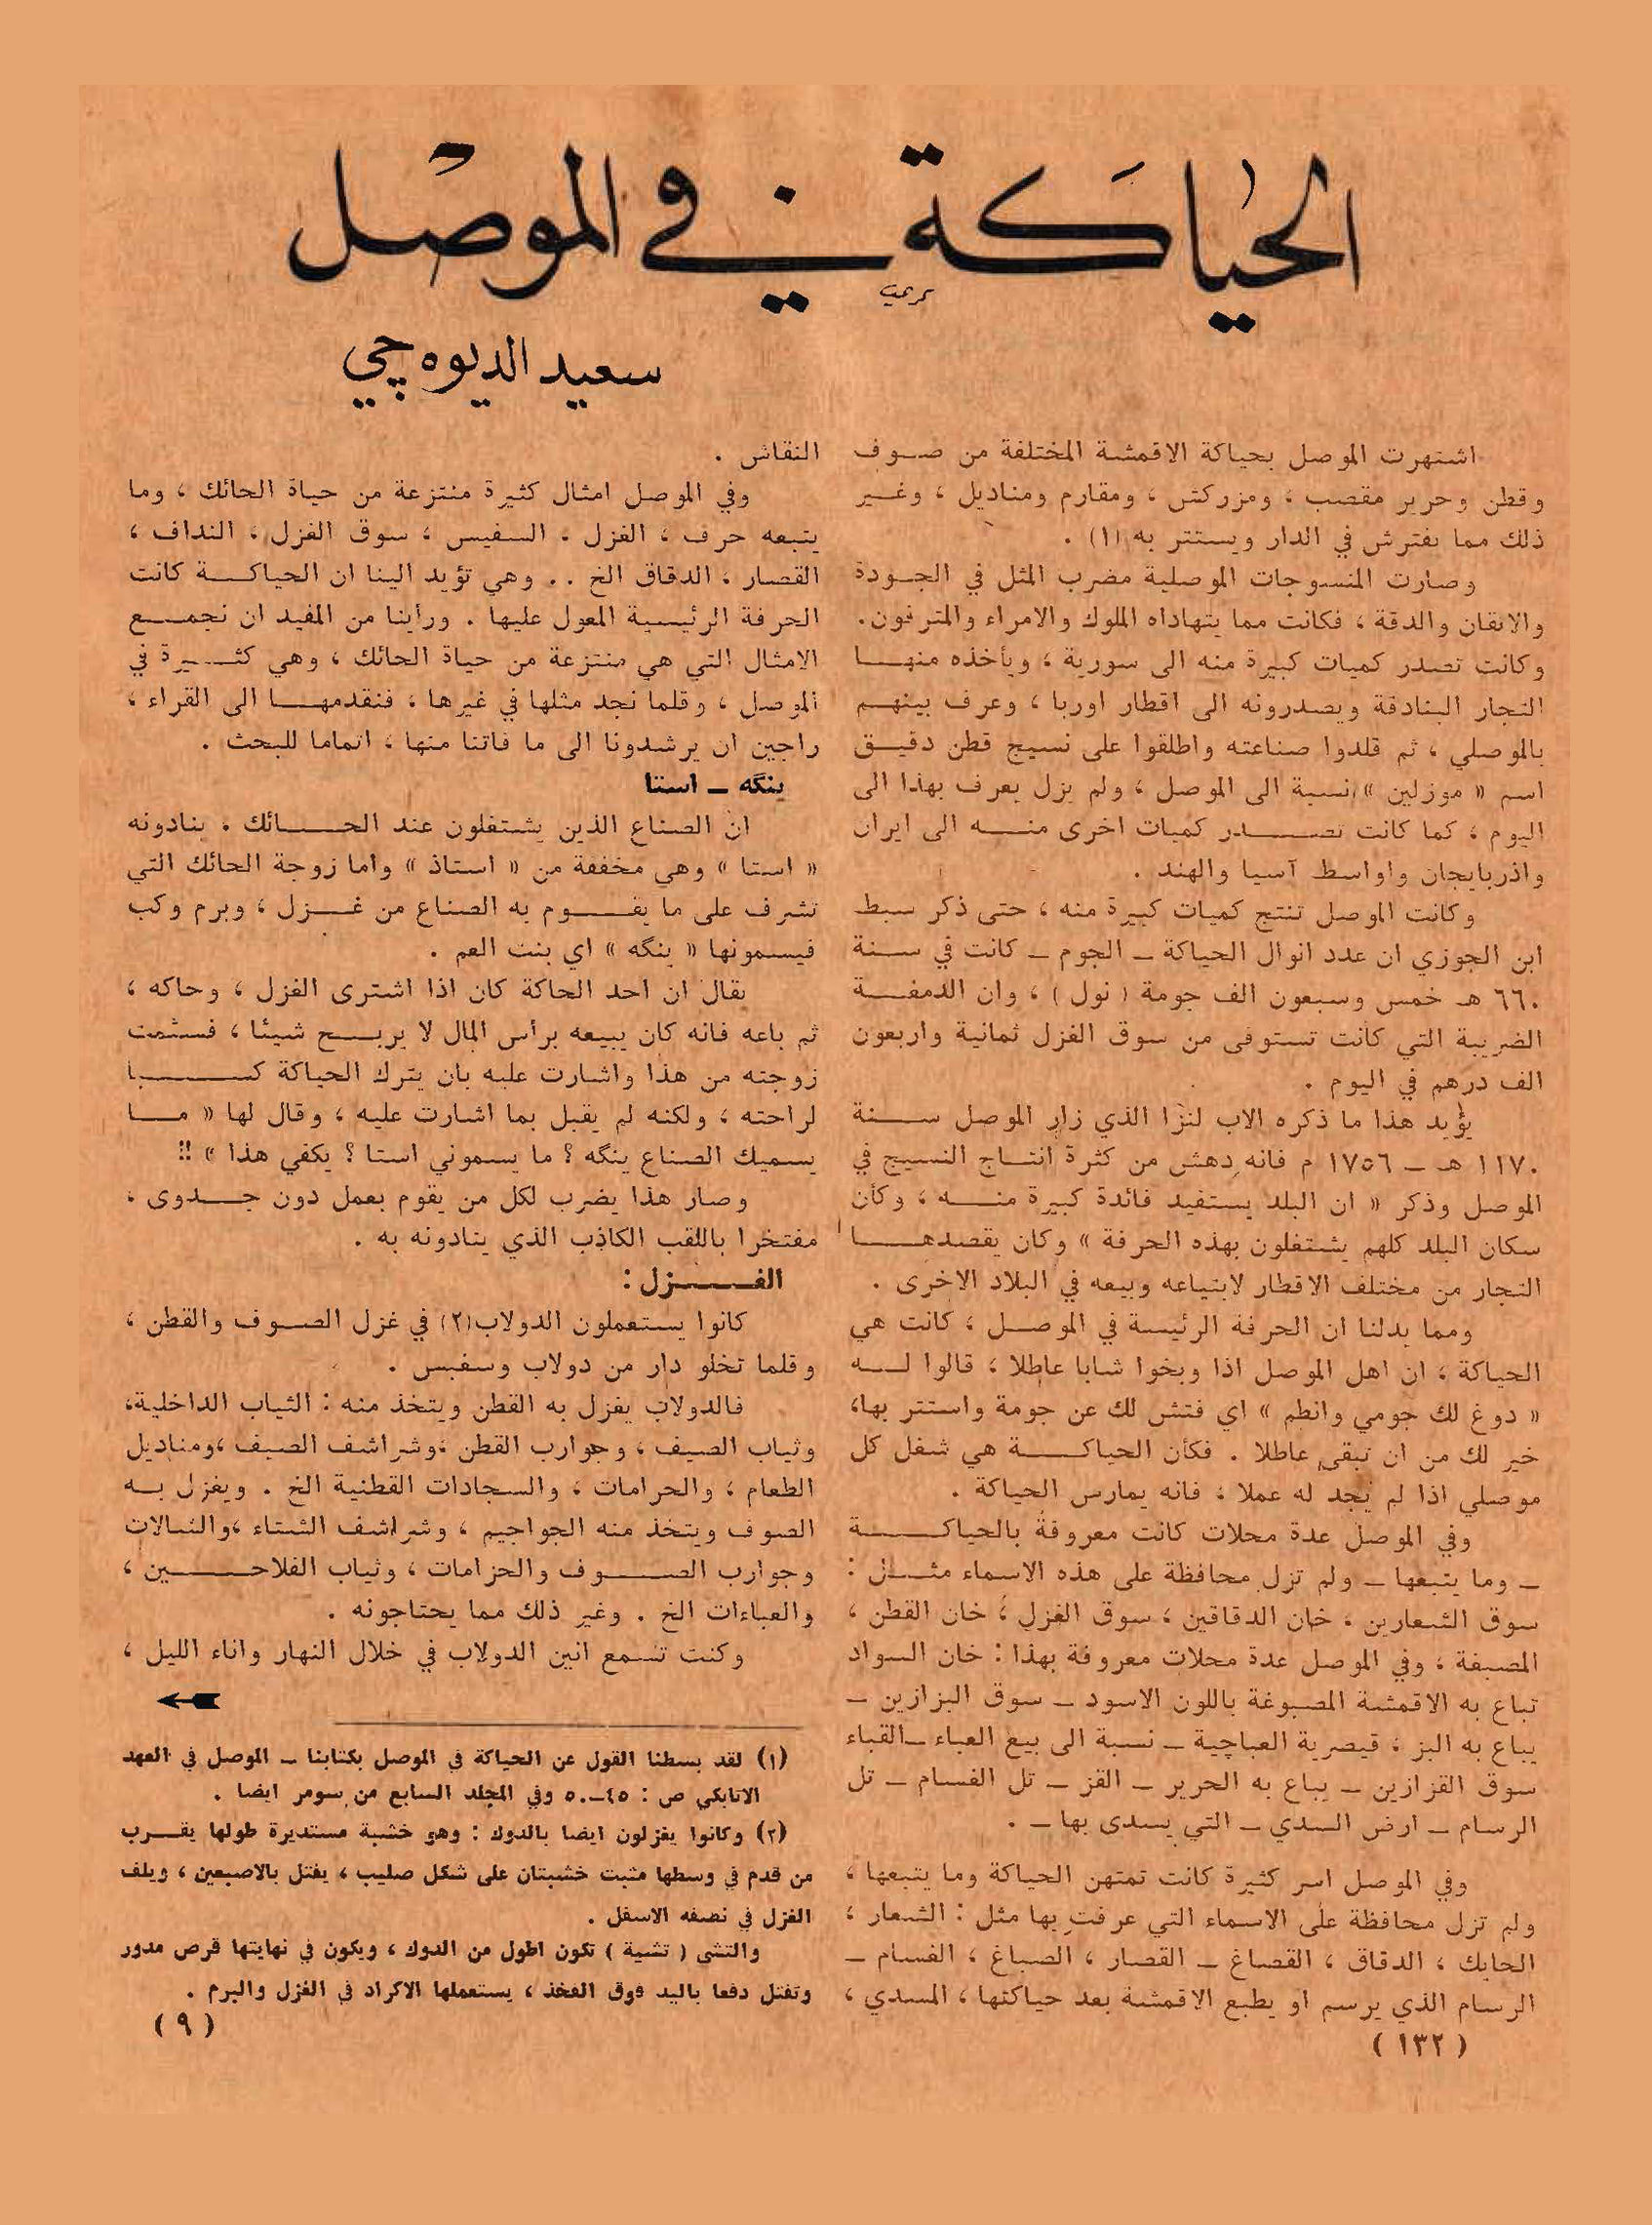 الحياكة في الموصل
سعيد الديوه چي
اشتهرت الموصل بحياكة الاقمشة المختلفة من صوف
وقطن وحرير مقصب ، ومزركش ، ومقارم ومناديل ، وغير
ذلك مما يفترش في الدار ويستتر به (١) .
وصارت المنسوجات الموصلية مضرب المثل في الجودة
والاتقان والدقة ، فكانت مما يتهاداه الملوك والامراء والمترفون.
وكانت تصدر كميات كبيرة منه الى سورية ، ويأخذه منها
التجار البنادقة ويصدرونه الى اقطار اوربا ، وعرف بينهم
بالموصلي ، ثم قلدوا صناعته واطلقوا على نسيج قطن دقيق
اسم « موزلين » نسبة الى الموصل ، ولم يزل يعرف بهذا الى
اليوم ، كما كانت تصدر كميات اخرى منه الى ايران
واذربايجان واواسط آسيا والهند .
وكانت الموصل تنتج كميات كبيرة منه ، حتى ذكر سبط
ابن الجوزي ان عدد انوال الحياكة – الجوم – كانت في سنة
٦٦٠ هـ خمس وسبعون الف جومة ( نول ) ، وان الدمغة
الضريبة التي كانت تستوفى من سوق الغزل ثمانية واربعون
الف درهم في اليوم .
يؤيد هذا ما ذكره الاب لنزا الذي زار الموصل سنة
١١٧٠ هـ – ١٧٥٦ م فانه دهش من كثرة انتاج النسيج في
الموصل وذكر « ان البلد يستفيد فائدة كبيرة منه ، وكأن
سكان البلد كلهم يشتغلون بهذه الحرفة » وكان يقصدها
التجار من مختلف الاقطار لابتياعه وبيعه في البلاد الاخرى .
ومما يدلنا ان الحرفة الرئيسة في الموصل ، كانت هي
الحياكة ، ان اهل الموصل اذا وبخوا شابا عاطلا ، قالوا له
« دوغ لك جومي وانطم » اي فتش لك عن جومة واستتر بها،
خير لك من ان تبقى عاطلا . فكأن الحياكة هي شغل كل
موصلي اذا لم يجد له عملا ، فانه يمارس الحياكة .
وفي الموصل عدة محلات كانت معروفة بالحياكة
– وما يتبعها – ولم تزل محافظة على هذه الاسماء مثل :
سوق الشعارين ، خان الدقاقين ، سوق الغزل ، خان القطن ،
المصبغة ، وفي الموصل عدة محلات معروفة بهذا : خان السواد
تباع به الاقمشة المصبوغة باللون الاسود – سوق البزازين –
يباع به البز ، قيصرية العباچية – نسبة الى بيع العباء –القباء
سوق القزازين – يباع به الحرير – القز – تل الغسام – تل
الرسام – ارض السدي – التي يسدى بها – .
وفي الموصل اسر كثيرة كانت تمتهن الحياكة وما يتبعها ،
ولم تزل محافظة على الاسماء التي عرفت بها مثل : الشعار ،
الحايك ، الدقاق ، القصاغ – القصار ، الصباغ ، الغسام –
الرسام الذي يرسم او يطبع الاقمشة بعد حياكتها ، المسدي ،
( ١٣٢ )
النقاش .
وفي الموصل امثال كثيرة منتزعة من حياة الحائك ، وما
يتبعه حرف ، الغزل ، السفيس ، سوق الغزل ، النداف ،
القصار ، الدقاق الخ . . وهي تؤيد الينا ان الحياكة كانت
الحرفة الرئيسية المعول عليها . ورأينا من المفيد ان نجمع
الامثال التي هي منتزعة من حياة الحائك ، وهي كثيرة في
الموصل ، وقلما نجد مثلها في غيرها ، فنقدمها الى القراء ،
راجين ان يرشدونا الى ما فاتنا منها ، اتماما للبحث .
ينگه – استا
ان الصناع الذين يشتغلون عند الحائك ، ينادونه
« استا » وهي مخففة من « استاذ » واما زوجة الحائك التي
تشرف على ما يقوم به الصناع من غزل ، وبرم وكب
فيسمونها « ينگه » اي بنت العم .
يقال ان احد الحاكة كان اذا اشترى الغزل ، وحاكه ،
ثم باعه فانه كان يبيعه برأس المال لا يربح شيئا ، فسئمت
زوجته من هذا واشارت عليه بان يترك الحياكة كسبا
لراحته ، ولكنه لم يقبل بما اشارت عليه ، وقال لها « ما
يسميك الصناع ينگه ؟ ما يسموني استا ؟ يكفي هذا » !!
وصار هذا يضرب لكل من يقوم بعمل دون جدوى ،
مفتخرا باللقب الكاذب الذي ينادونه به .
الغزل :
كانوا يستعملون الدولاب(٢) في غزل الصوف والقطن ،
وقلما تخلو دار من دولاب وسفيس .
فالدولاب يغزل به القطن ويتخذ منه : الثياب الداخلية،
وثياب الصيف ، وجوارب القطن ،وشراشف الصيف ،ومناديل
الطعام ، والحرامات ، والسجادات القطنية الخ . ويغزل به
الصوف ويتخذ منه الجواجيم ، وشراشف الشتاء ،والشالات
وجوارب الصوف والحزامات ، وثياب الفلاحين ،
والعباءات الخ . وغير ذلك مما يحتاجونه .
وكنت تسمع انين الدولاب في خلال النهار واناء الليل ،
(١) لقد بسطنا القول عن الحياكة في الموصل بكتابنا – الموصل في العهد
الاتابكي ص : ٤٥–٥٠ وفي المجلد السابع من سومر ايضا .
(٢) وكانوا يغزلون ايضا بالدوك : وهو خشبة مستديرة طولها يقرب
من قدم في وسطها مثبت خشبتان على شكل صليب ، يفتل بالاصبعين ، ويلف
الغزل في نصفه الاسفل .
والتشى ( تشية ) تكون اطول من الدوك ، ويكون في نهايتها قرص مدور
وتفتل دفعا باليد فوق الفخذ ، يستعملها الاكراد في الغزل والبرم .
( ٩ )